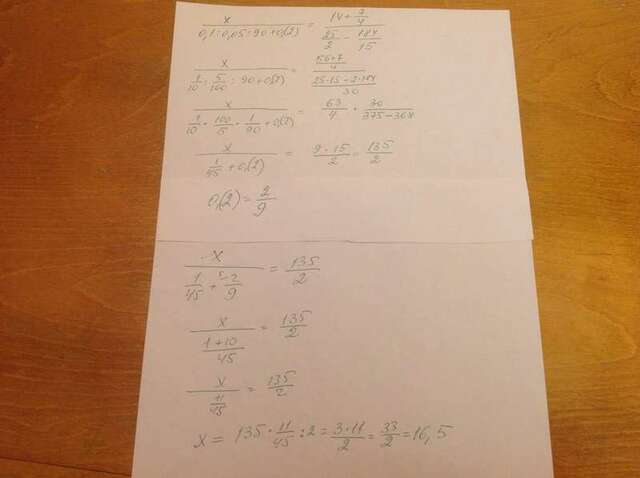 x / (0,1 : 0,05 : 90 + 0,(2)) = (14 + 7/4) / (25/2 - 184/15)
x / (1/10 : 5/100 : 90 + 0,(2)) = ((56+7)/4) / ((25·15 - 2·184)/30)
x / (1/10 · 100/5 · 1/90 + 0,(2)) = 63/4 · 30/(375-368)
x / (1/45 + 0,(2)) = 9·15/2 = 135/2
0,(2) = 2/9
x / (1/45 + 2/9) = 135/2
x / ((1+10)/45) = 135/2
x / (11/45) = 135/2
x = 135 · 11/45 : 2 = 3·11/2 = 33/2 = 16,5